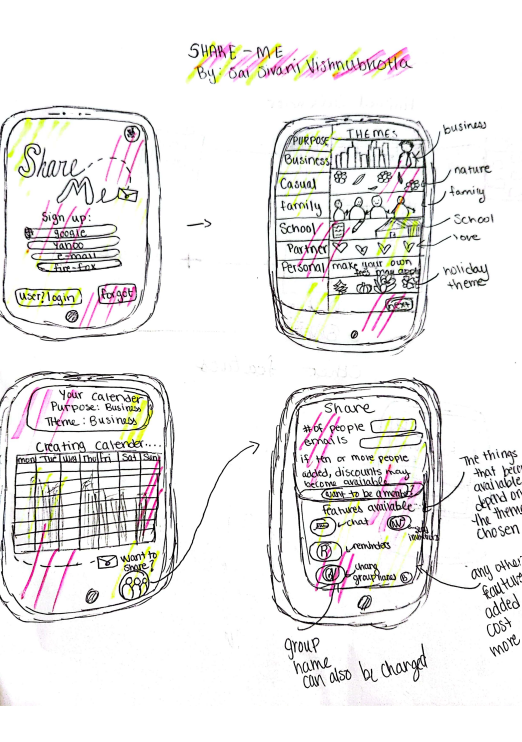 SHARE-ME
By: Sai Sivani Vishnubhotla
Share
Me
Sign up:
google
Yahoo
e-mail
fire-fox
user/login
forget
PURPOSE
THEMES
Business
Casual
family
School
Partner
Personal
make your own
fees may apply
next
business
nature
family
School
love
holiday
theme
Your calender
Purpose: Business
Theme: Business
Creating Calender....
mon Tue Wed Thu Fri Sat Sun
want to
share?
Share
# of people
emails
if ten or more people
added, discounts may
become available
want to be a member
Features available:
chat
reminders
group names
The things
that being
available
depend on
the theme
chosen
any other
feature
added
cost
more
group
name
can also be changed